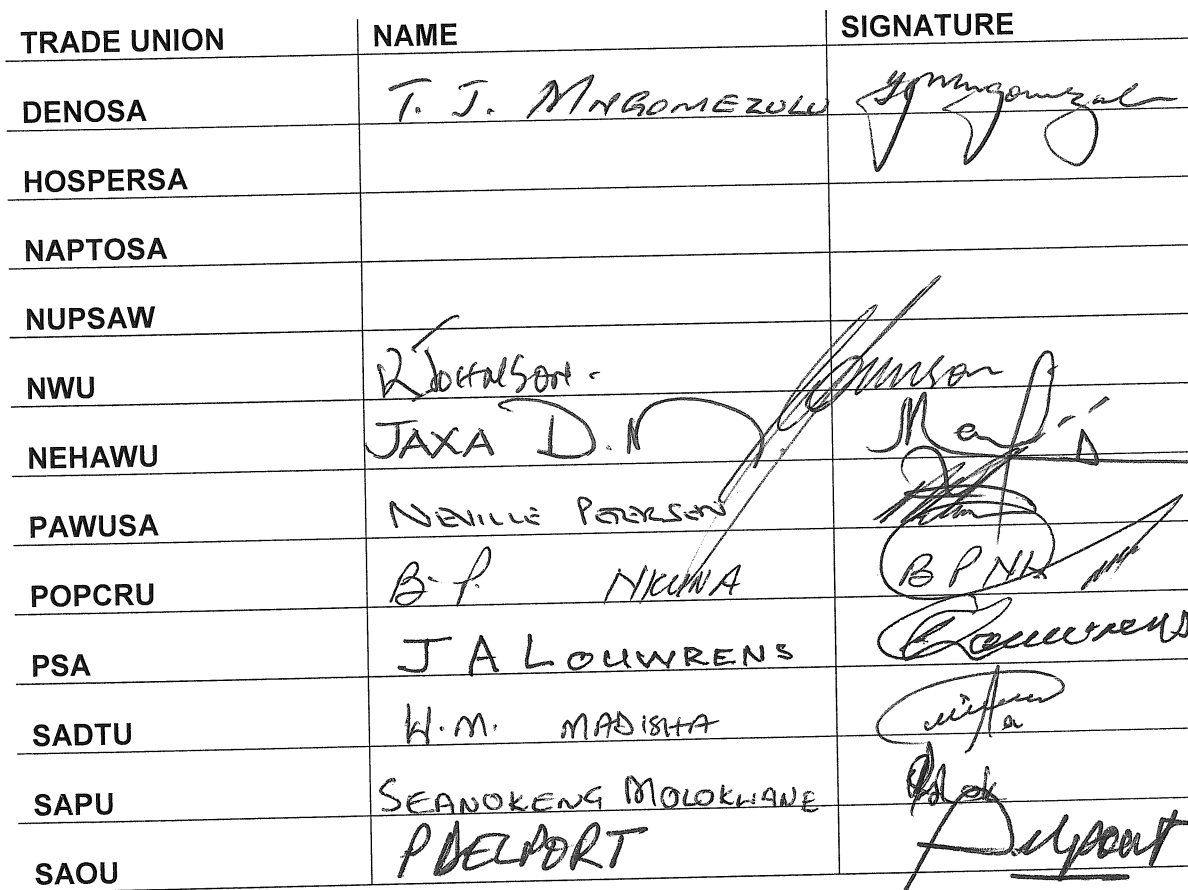 TRADE UNION NAME SIGNATURE
DENOSA T. J. MNGOMEZULU
HOSPERSA
NAPTOSA
NUPSAW
NWU R JOHNSON.
NEHAWU JAXA D.N
PAWUSA NEVILLE PETERSEN
POPCRU B.P. NKUNA B P NK
PSA J A LOUWRENS Louwrens
SADTU W.M. MADISHA
SAPU SEANOKENG MOLOKWANE
SAOU P DELPORT Delport